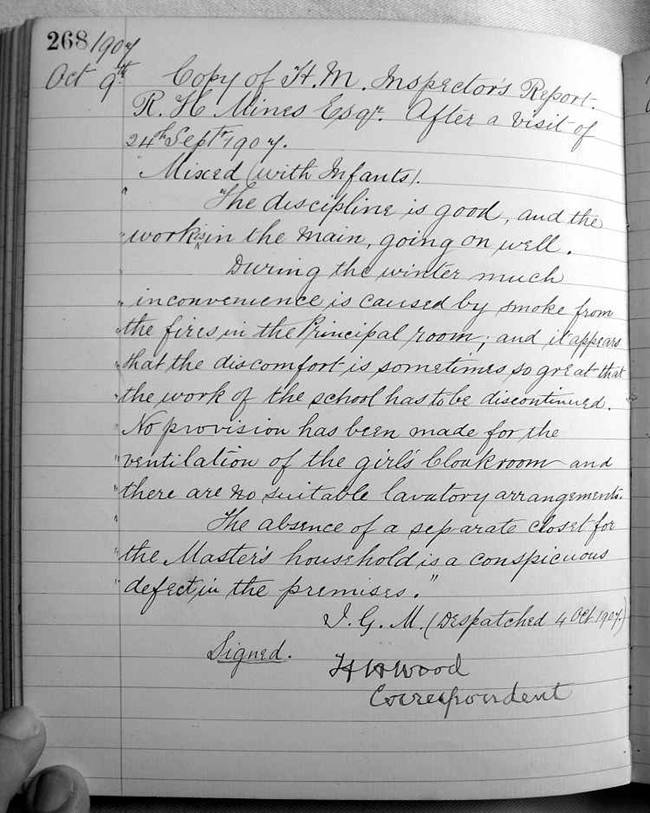 268/1907
Oct 9th. Copy of H. M. Inspector's Report.
R. H Mines Esqr. After a visit of
24th Septr 1907.
"Mixed (with Infants).
" The discipline is good, and the
" work is in the main, going on well.
" During the winter much
" inconvenience is caused by smoke from
" the fires in the Principal room; and it appears
" that the discomfort is sometimes so great that
" the work of the school has to be discontinued.
" No provision has been made for the
" ventilation of the girl's Cloakroom and
" there are no suitable lavatory arrangements.
" The absence of a separate closet for
" the Master's household is a conspicuous
" defect in the premises."
J. G. M. (Despatched 4 Oct 1907.)
Signed. H H Wood
Correspondent